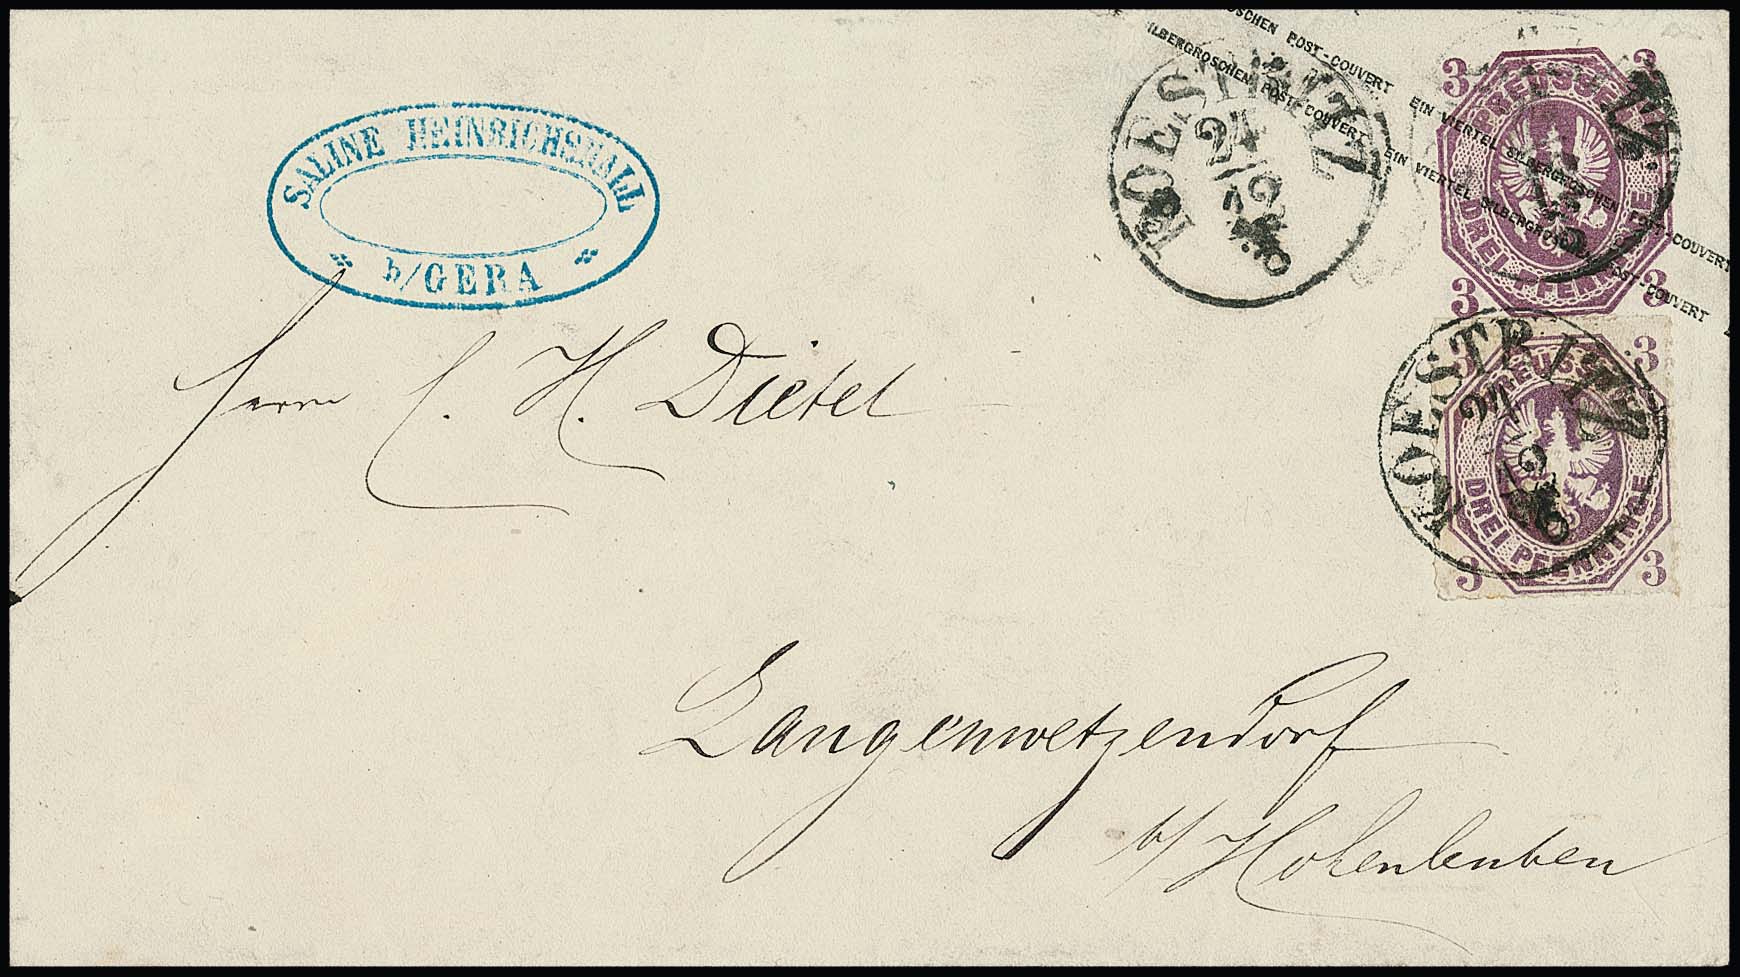 SALINE HEINRICHSHALL
b/GERA
EIN VIERTEL SILBERGROSCHEN POST-COUVERT EIN VIERTEL SILBERGROSCHEN POST-COUVERT
SILBERGROSCHEN POST-COUVERT EIN VIERTEL SILBERGROSCHEN POST-COUVERT
KOESTRITZ
24
12
3 3
PREUSSEN
DREI PFENNINGE
3 3
KOESTRITZ
24
12
3 3
PREUSSEN
DREI PFENNINGE
3 3
Herrn C. H. Dietel
Langenwetzendorf
b/ Hohenleuben